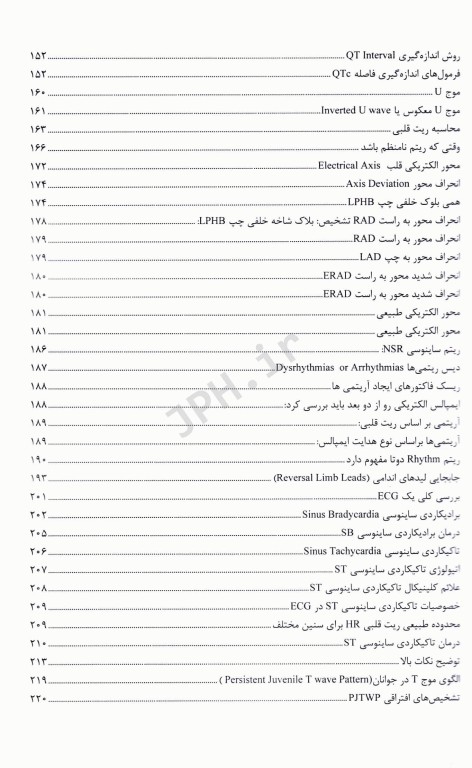 روش اندازه‌گیری QT Interval ........ ۱۵۲
فرمول‌های اندازه‌گیری فاصله QTc ........ ۱۵۲
موج U ........ ۱۶۰
موج U معکوس یا Inverted U wave ........ ۱۶۱
محاسبه ریت قلبی ........ ۱۶۳
وقتی که ریتم نامنظم باشد ........ ۱۶۶
محور الکتریکی قلب Electrical Axis ........ ۱۷۲
انحراف محور Axis Deviation ........ ۱۷۴
همی بلوک خلفی چپ LPHB ........ ۱۷۴
انحراف محور به راست RAD تشخیص: بلاک شاخه خلفی چپ LPHB: ........ ۱۷۸
انحراف محور به راست RAD ........ ۱۷۹
انحراف محور به چپ LAD ........ ۱۷۹
انحراف شدید محور به راست ERAD ........ ۱۸۰
انحراف شدید محور به راست ERAD ........ ۱۸۰
محور الکتریکی طبیعی ........ ۱۸۱
محور الکتریکی طبیعی ........ ۱۸۱
ریتم ساینوسی NSR: ........ ۱۸۶
دیس ریتمی‌ها Dysrhythmias or Arrhythmias ........ ۱۸۷
ریسک فاکتورهای ایجاد آریتمی ها ........ ۱۸۸
ایمپالس الکتریکی رو از دو بعد باید بررسی کرد: ........ ۱۸۸
آریتمی بر اساس ریت قلبی: ........ ۱۸۹
آریتمی‌ها براساس نوع هدایت ایمپالس: ........ ۱۸۹
ریتم Rhythm دوتا مفهوم دارد ........ ۱۹۰
جابجایی لیدهای اندامی (Reversal Limb Leads) ........ ۱۹۳
بررسی کلی یک ECG ........ ۲۰۱
برادیکاردی ساینوسی Sinus Bradycardia ........ ۲۰۲
درمان برادیکاردی ساینوسی SB ........ ۲۰۵
تاکیکاردی ساینوسی Sinus Tachycardia ........ ۲۰۶
اتیولوژی تاکیکاردی ساینوسی ST ........ ۲۰۷
علائم کلینیکال تاکیکاردی ساینوسی ST ........ ۲۰۸
خصوصیات تاکیکاردی ساینوسی ST در ECG ........ ۲۰۹
محدوده طبیعی ریت قلبی HR برای سنین مختلف ........ ۲۰۹
درمان تاکیکاردی ساینوسی ST ........ ۲۱۰
توضیح نکات بالا ........ ۲۱۳
الگوی موج T در جوانان(Persistent Juvenile T wave Pattern ) ........ ۲۱۹
تشخیص‌های افتراقی PJTWP ........ ۲۲۰
JPH.ir